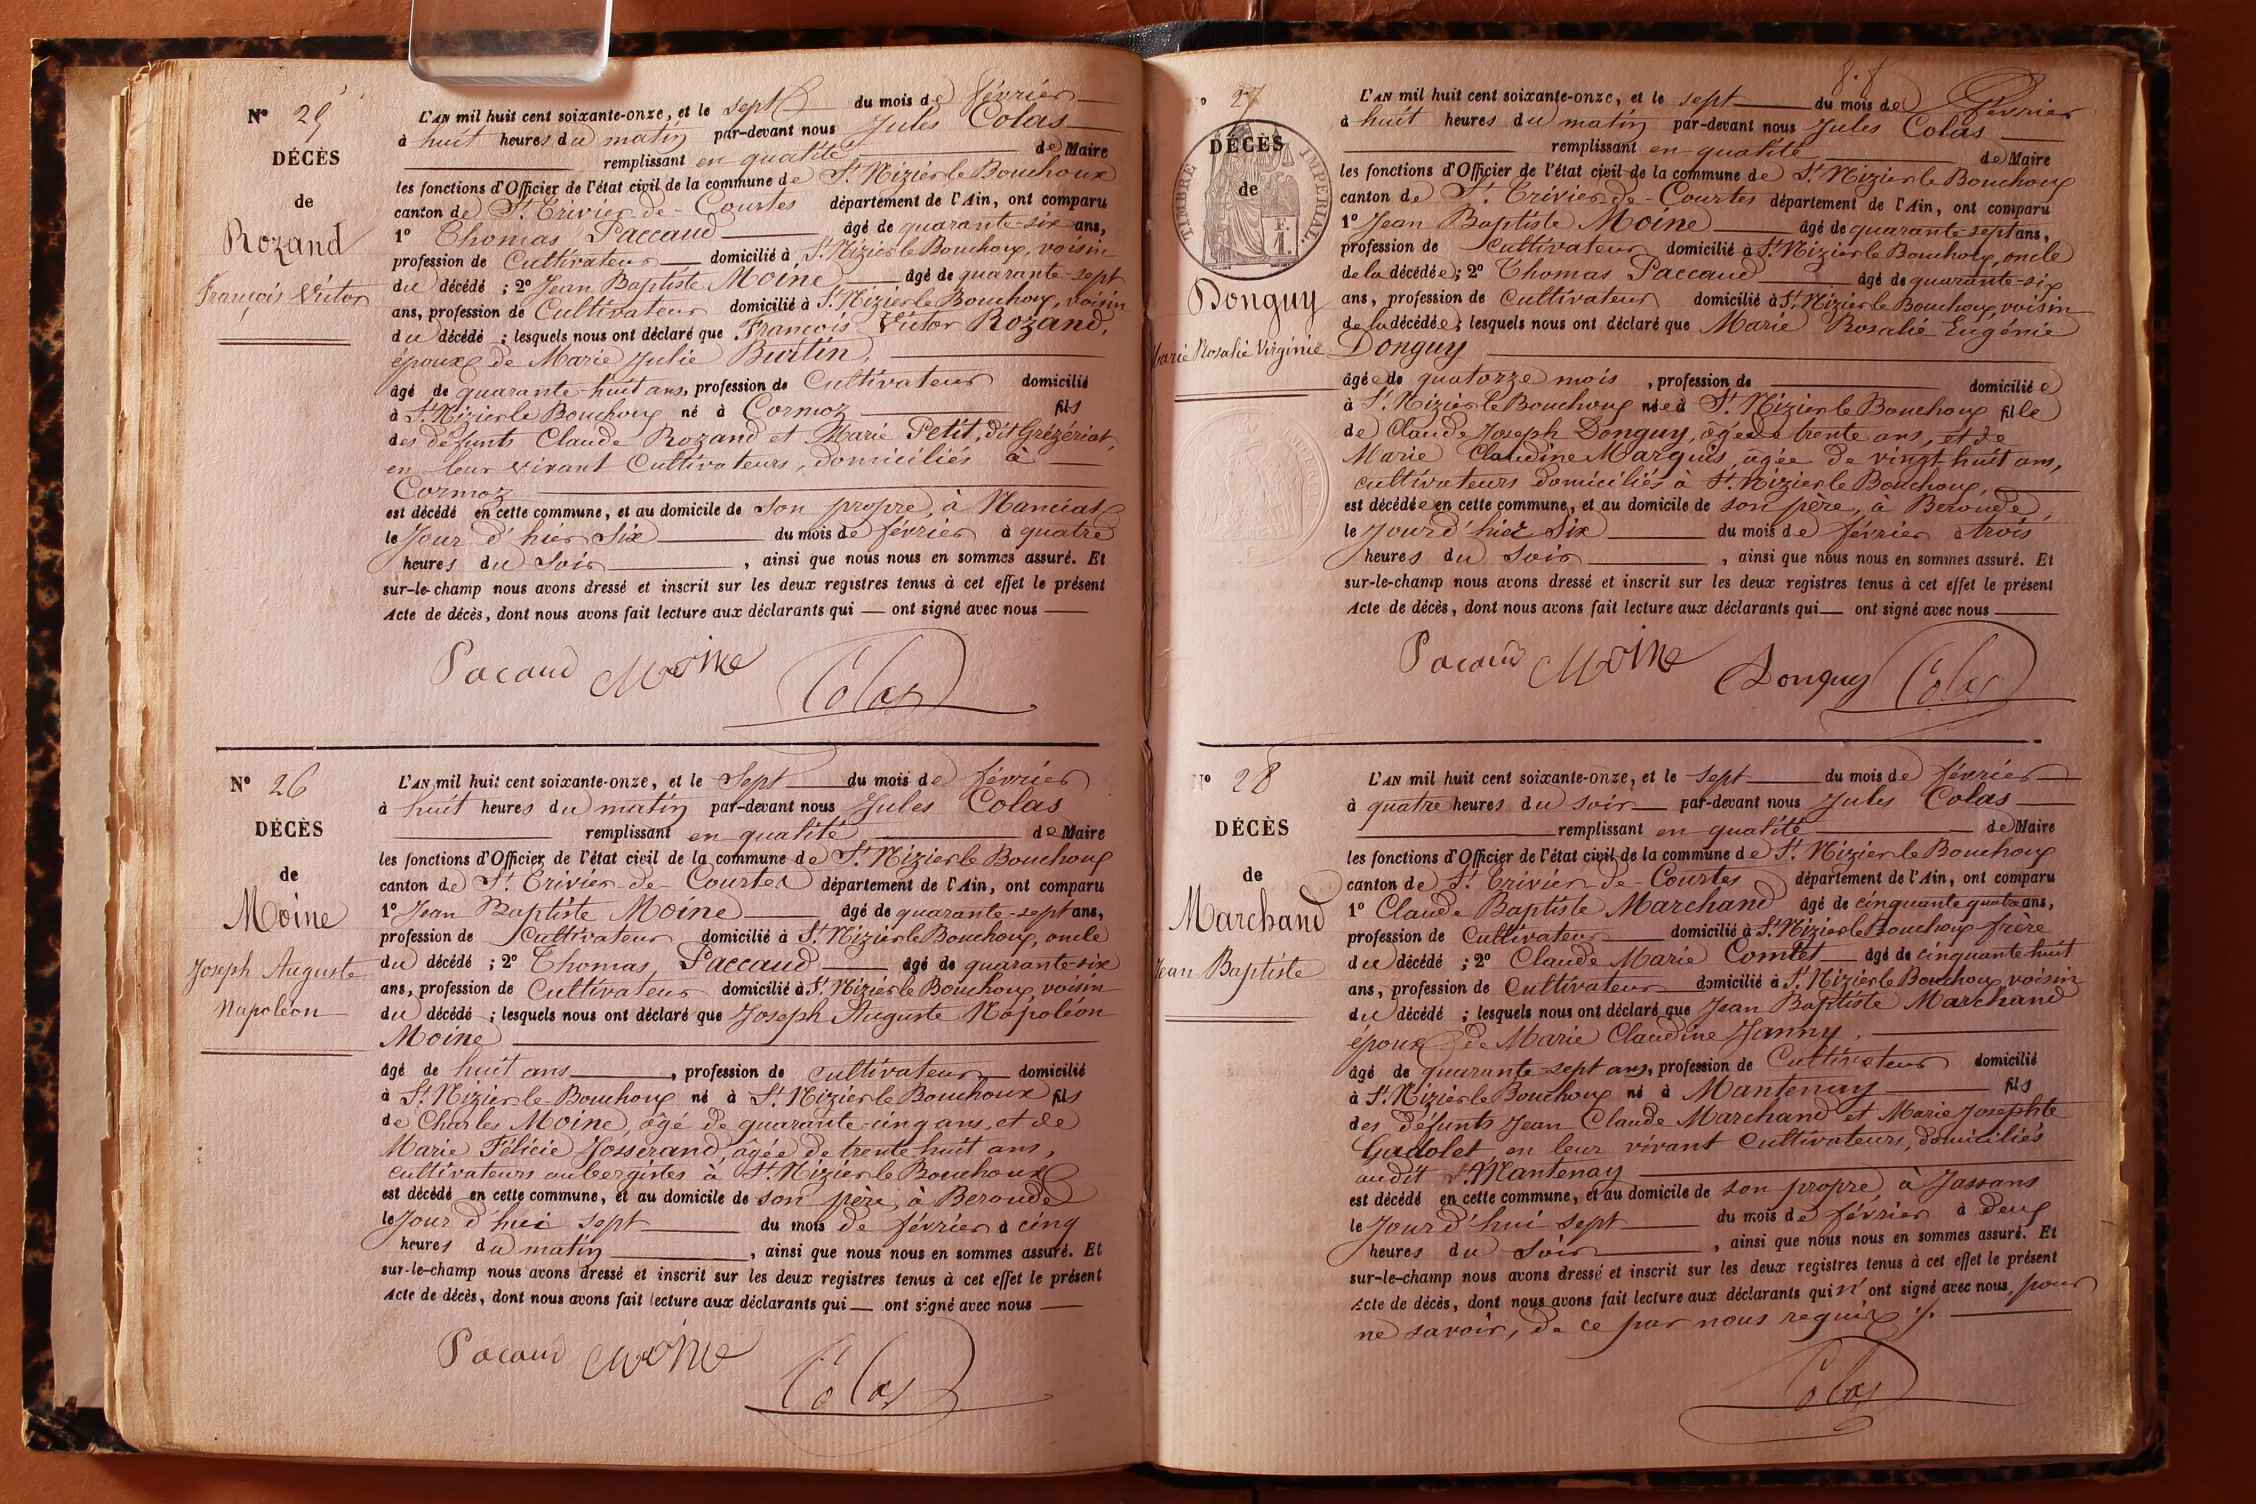 Nº 25
DÉCÈS
de
Rozand
François Victor
L'AN mil huit cent soixante-onze, et le sept du mois de février
à huit heures du matin par-devant nous Jules Colas
remplissant en qualité de Maire
les fonctions d'Officier de l'état civil de la commune de St Nizier le Bouchoux
canton de St Trivier-de-Courtes département de l'Ain, ont comparu
1º Thomas Paccaud âgé de quarante-six ans,
profession de Cultivateur domicilié à St Nizier le Bouchoux, voisin
du décédé ; 2º Jean Baptiste Moine âgé de quarante-sept
ans, profession de Cultivateur domicilié à St Nizier le Bouchoux, voisin
du décédé ; lesquels nous ont déclaré que François Victor Rozand,
époux de Marie Julie Burtin,
âgé de quarante-huit ans, profession de Cultivateur domicilié
à St Nizier le Bouchoux né à Cormoz fils
des défunts Claude Rozand et Marie Petit, dit Grézériat,
en leur vivant Cultivateurs, domiciliés à
Cormoz
est décédé en cette commune, et au domicile de son propre, à Nanciat
le Jour d'hier Six du mois de février à quatre
heures du Soir , ainsi que nous nous en sommes assuré. Et
sur-le-champ nous avons dressé et inscrit sur les deux registres tenus à cet effet le présent
Acte de décès, dont nous avons fait lecture aux déclarants qui ont signé avec nous
Pacaud Moine Colas
Nº 26
DÉCÈS
de
Moine
Joseph Auguste
Napoléon
L'AN mil huit cent soixante-onze, et le Sept du mois de février
à huit heures du matin par-devant nous Jules Colas
remplissant en qualité de Maire
les fonctions d'Officier de l'état civil de la commune de St Nizier le Bouchoux
canton de St Trivier-de-Courtes département de l'Ain, ont comparu
1º Jean Baptiste Moine âgé de quarante-sept ans,
profession de Cultivateur domicilié à St Nizier le Bouchoux, oncle
du décédé ; 2º Thomas Paccaud âgé de quarante-six
ans, profession de Cultivateur domicilié à St Nizier le Bouchoux, voisin
du décédé ; lesquels nous ont déclaré que Joseph Auguste Napoléon
Moine
âgé de huit ans , profession de cultivateur domicilié
à St Nizier le Bouchoux né à St Nizier le Bouchoux fils
de Charles Moine, âgé de quarante-cinq ans, et de
Marie Félicie Josserand, âgée de trente huit ans,
cultivateurs aubergistes à St Nizier le Bouchoux
est décédé en cette commune, et au domicile de son père, à Beroude
le Jour d'hui sept du mois de février à cinq
heures du matin , ainsi que nous nous en sommes assuré. Et
sur-le-champ nous avons dressé et inscrit sur les deux registres tenus à cet effet le présent
Acte de décès, dont nous avons fait lecture aux déclarants qui ont signé avec nous
Pacaud Moine Colas
º 27
DÉCÈS
de
TIMBRE IMPÉRIAL
Donguy
Marie Rosalie Virginie
L'AN mil huit cent soixante-onze, et le sept du mois de Février
à huit heures du matin par-devant nous Jules Colas
remplissant en qualité de Maire
les fonctions d'Officier de l'état civil de la commune de St Nizier le Bouchoux
canton de St Trivier-de-Courtes département de l'Ain, ont comparu
1º Jean Baptiste Moine âgé de quarante-sept ans,
profession de Cultivateur domicilié à St Nizier le Bouchoux, oncle
de la décédée ; 2º Thomas Paccaud âgé de quarante-six
ans, profession de Cultivateur domicilié à St Nizier le Bouchoux, voisin
de la décédée ; lesquels nous ont déclaré que Marie Rosalie Eugénie
Donguy
âgée de quatorze mois , profession de domiciliée
à St Nizier le Bouchoux née à St Nizier le Bouchoux fille
de Claude Joseph Donguy, âgé de trente ans, et de
Marie Claudine Marquis, âgée de vingt-huit ans,
cultivateurs domiciliés à St Nizier le Bouchoux,
est décédée en cette commune, et au domicile de son père, à Beroude,
le Jour d'hier Six du mois de février à trois
heures du Soir , ainsi que nous nous en sommes assuré. Et
sur-le-champ nous avons dressé et inscrit sur les deux registres tenus à cet effet le présent
Acte de décès, dont nous avons fait lecture aux déclarants qui ont signé avec nous
Pacaud Moine Donguy Colas
º 28
DÉCÈS
de
Marchand
Jean Baptiste
L'AN mil huit cent soixante-onze, et le sept du mois de février
à quatre heures du soir par-devant nous Jules Colas
remplissant en qualité de Maire
les fonctions d'Officier de l'état civil de la commune de St Nizier le Bouchoux
canton de St Trivier-de-Courtes département de l'Ain, ont comparu
1º Claude Baptiste Marchand âgé de cinquante quatre ans,
profession de Cultivateur domicilié à St Nizier le Bouchoux frère
du décédé ; 2º Claude Marie Comtet âgé de cinquante-huit
ans, profession de Cultivateur domicilié à St Nizier le Bouchoux, voisin
du décédé ; lesquels nous ont déclaré que Jean Baptiste Marchand
époux de Marie Claudine Janny,
âgé de quarante-sept ans, profession de Cultivateur domicilié
à St Nizier le Bouchoux né à Mantenay fils
des défunts Jean Claude Marchand et Marie Josephte
Gadolet, en leur vivant Cultivateurs, domiciliés
audit Mantenay
est décédé en cette commune, et au domicile de son propre, à Jassans
le Jour d'hui sept du mois de février à deux
heures du Soir , ainsi que nous nous en sommes assuré. Et
sur-le-champ nous avons dressé et inscrit sur les deux registres tenus à cet effet le présent
Acte de décès, dont nous avons fait lecture aux déclarants qui n'ont signé avec nous, pour
ne savoir, de ce par nous requis
Colas